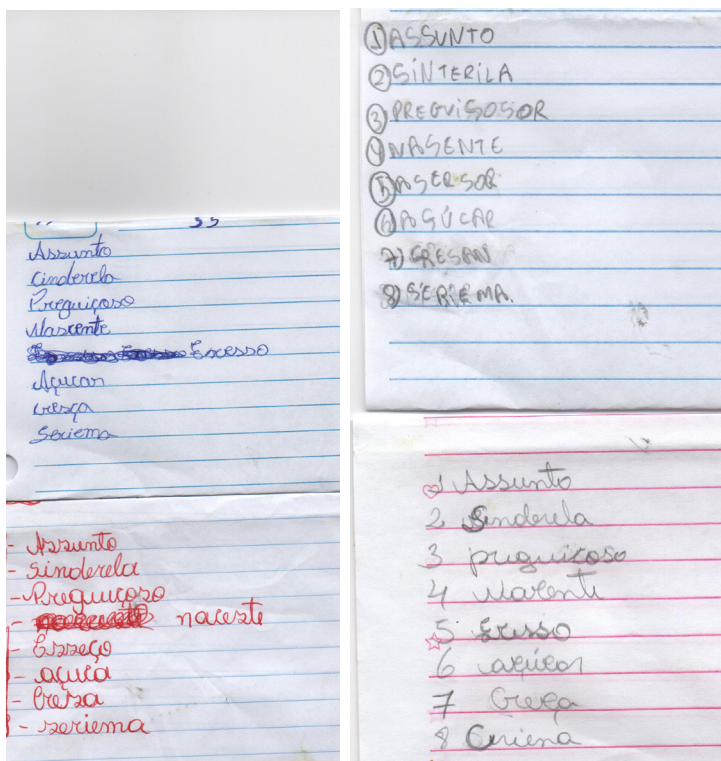 Assunto
Cinderela
Preguiçoso
Nascente
Excesso
Açucar
cresça
Seriema
- Assunto
- sinderela
- Preguiçoso
- naceste
- Esseço
- açuca
- Cresa
- seriema
① ASSUNTO
② SINTERILA
③ PREGVISOSOR
④ NASENTE
⑤ ASERSOR
⑥ AÇÚCAR
7) CRESAN
8) SERIEMA.
1 Assunto
2 Sinderela
3 preguicoso
4 Nacente
5
6 açúcar
7 Creça
8 Ceriema